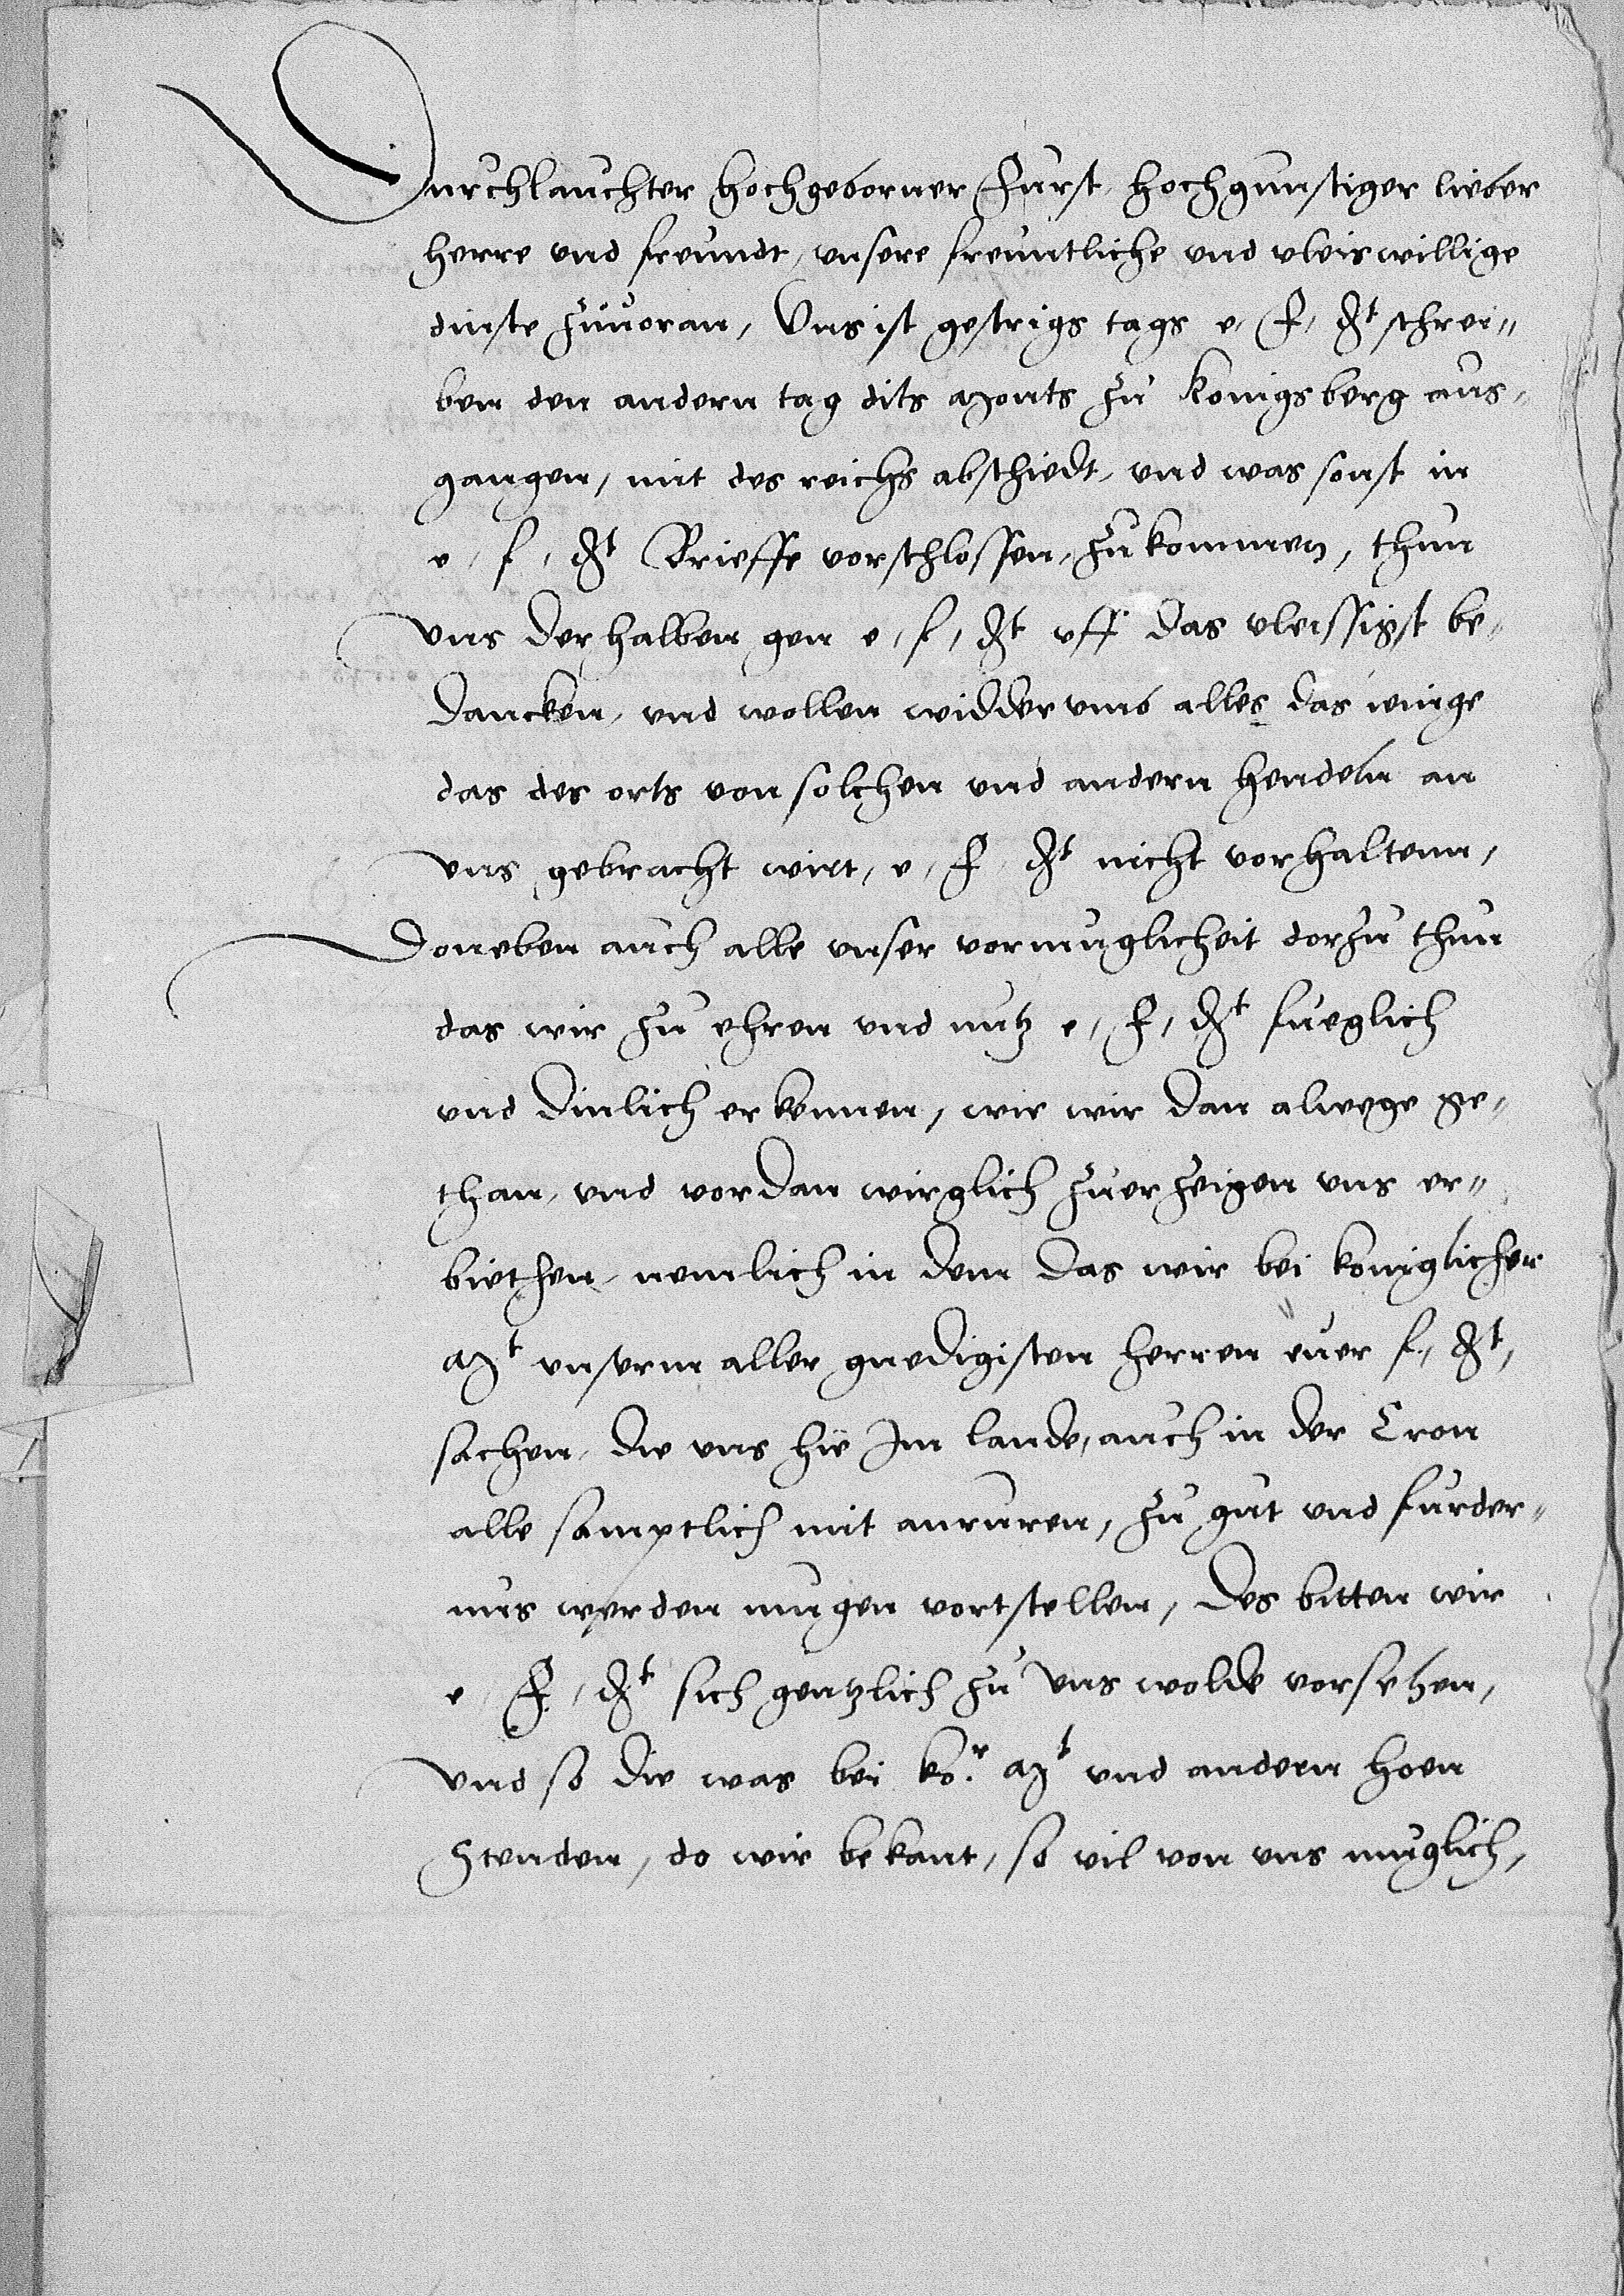 Durchlauchter hochgeborner Furst, hochgunstiger lieber
herre und freundt, unsere freuntliche und vleis willige
dinste zuuoran, Uns ist gestrigs tags e, F, Gt schrei„
ben den andern tag dits Monts zu Konigsberg aus„
gangen, mit des reichs abschiedt, und was sonst in
e, f, Gt Brieffe vorschlossen, zukommen, thun
uns derhalben gen e, f, Gt uff das vleissigst be„
dancken, und wollen widderumb alles das jenige
das des orts von solchen und andern hendeln an
uns gebracht wirt, e, F, Gt nicht vorhaltenn,
Doneben auch alle unser vormuglicheit dorzu thun
das wir zu ehren und nutz e, F, Gt fueglich
und dinlich erkennen, wie wir dan alwege ge„
than, und vordan wirglich zuerzeigen uns er„
biethen, nemlich in dem das wir bei koniglicher
Mt unserm aller gnedigisten herren euer f, Gt,
sachen, die uns hie Im lande, auch in der Cron
alle samptlich mit anruren, zu gut und furder„
nus werden mugen vortstellen, Des bitten wir
e, F, Gt sich gentzlich zu uns wolde vorsehen,
Und so die was bei ko.r Mt und andern hoen
Stenden, do wir bekant, so vil von uns muglich,